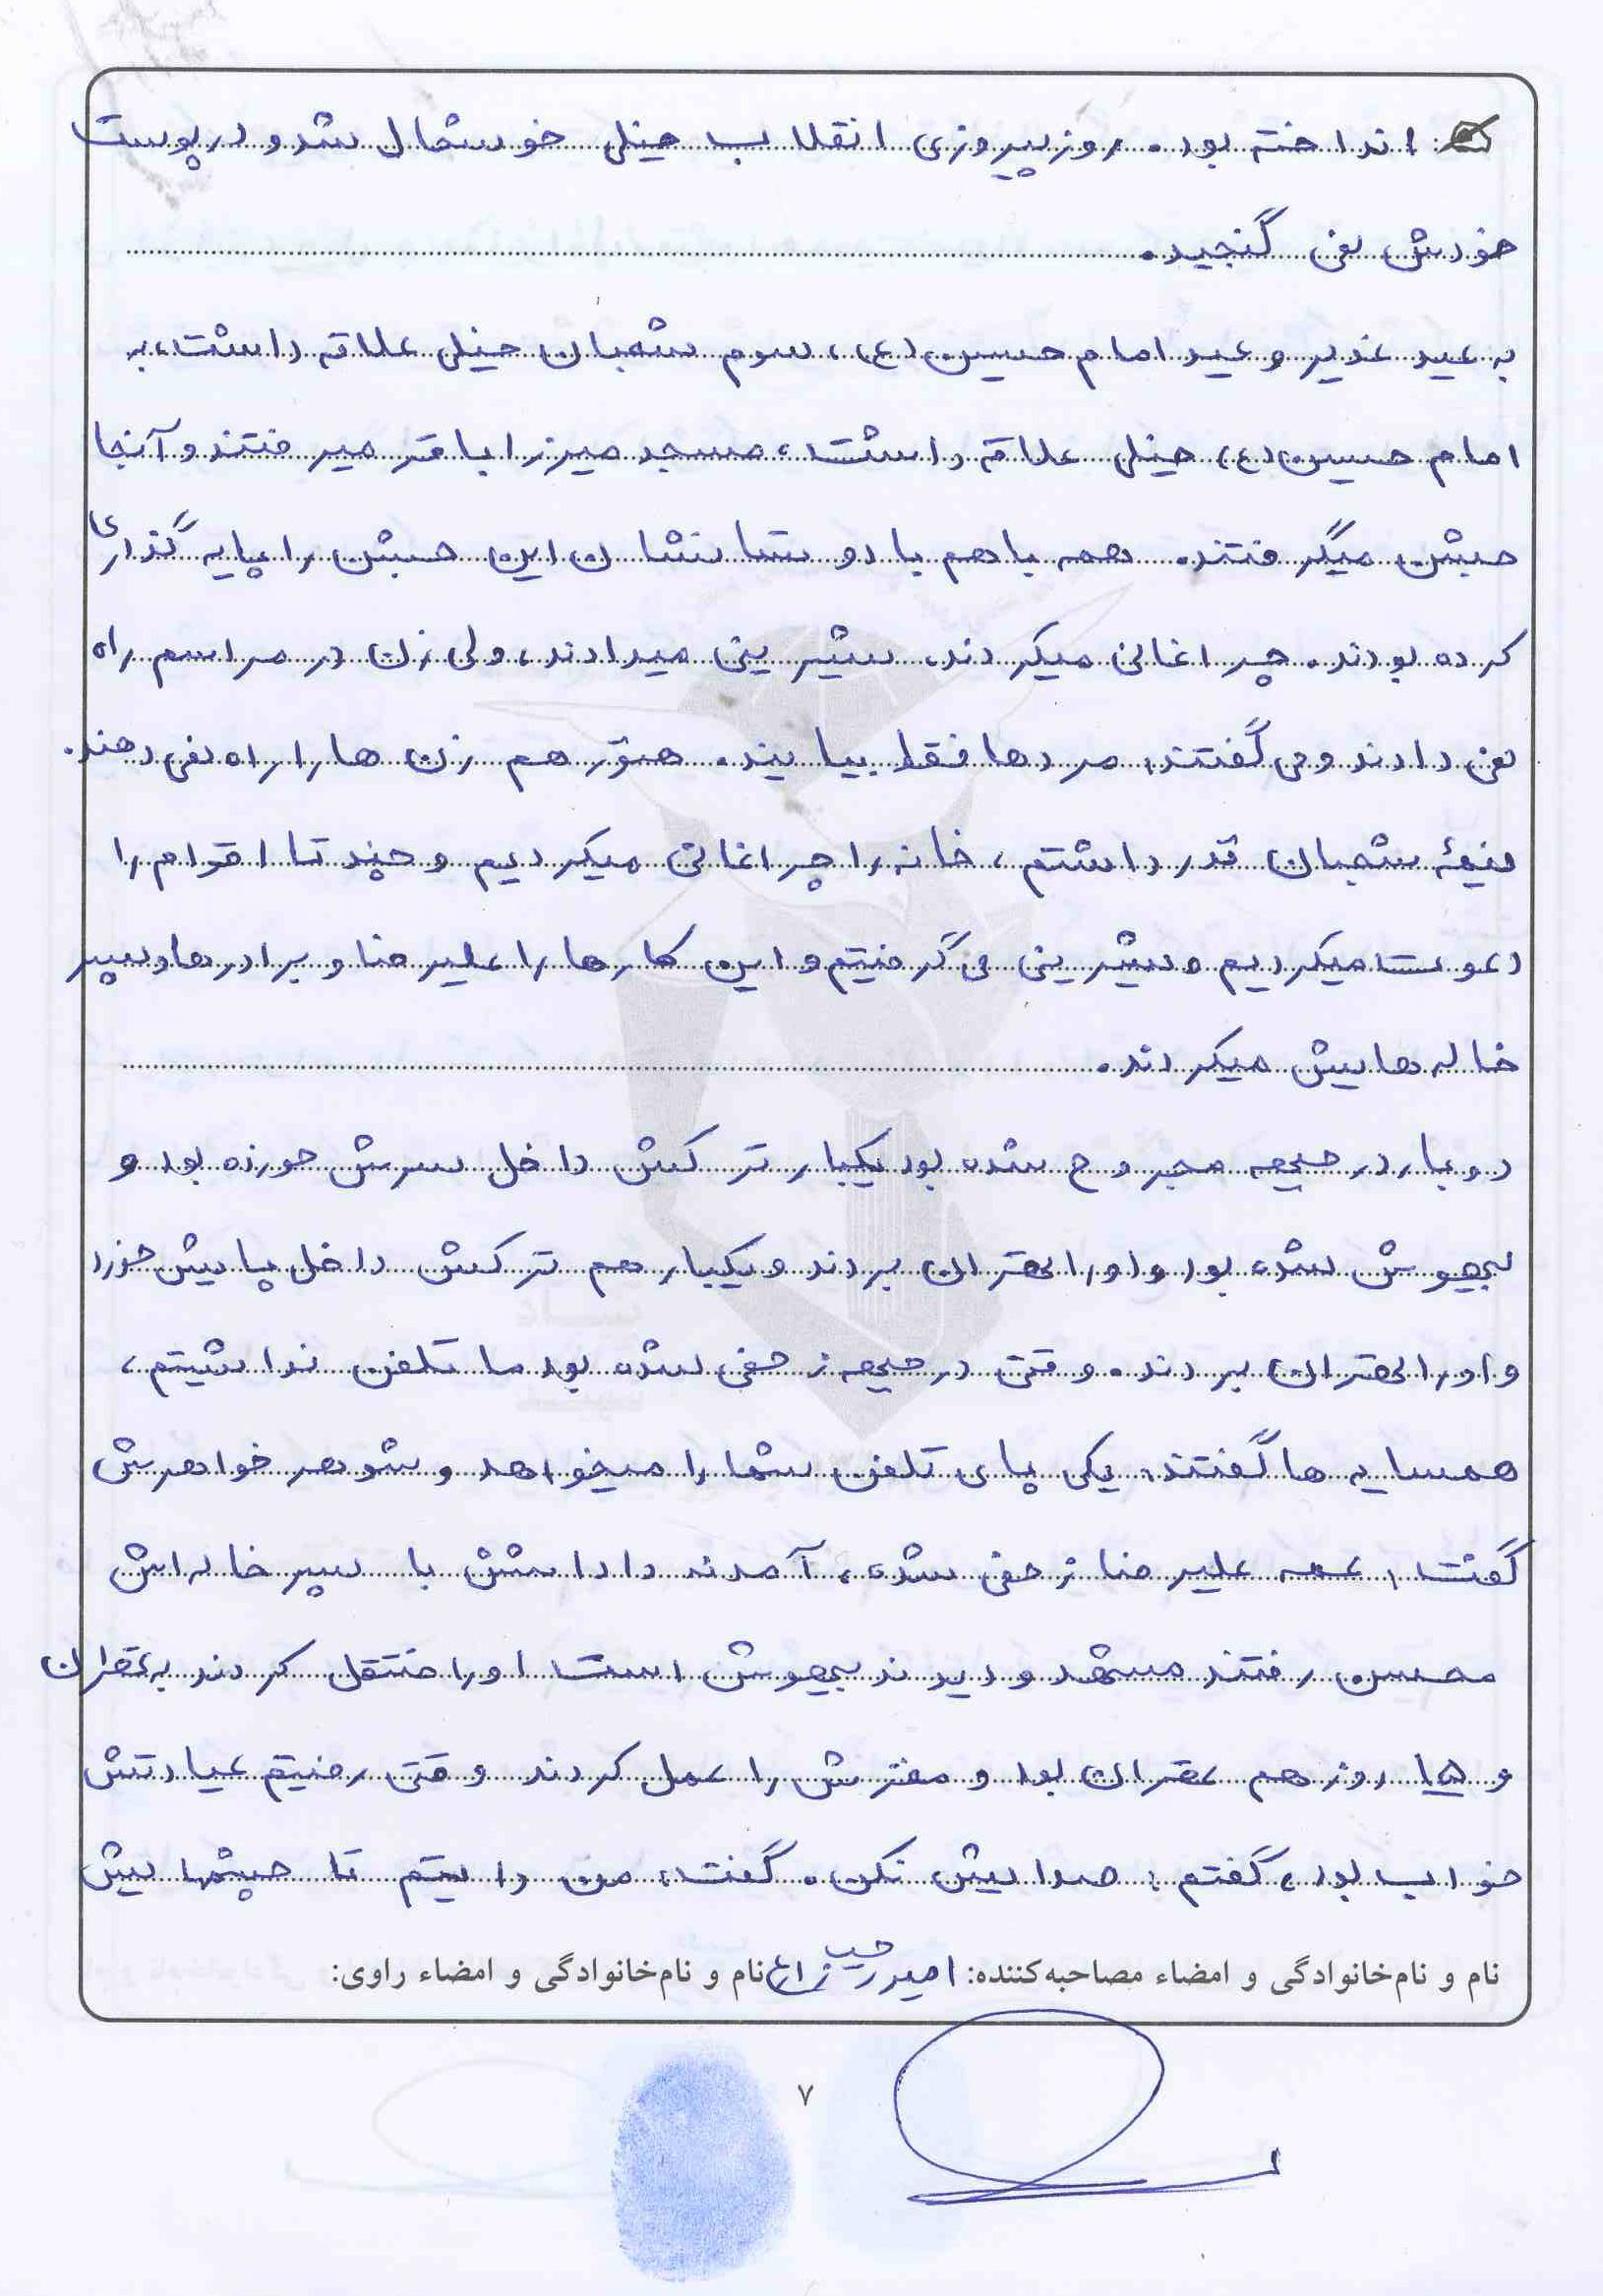 انداخته بود. روز پیروزی انقلاب خیلی خوشحال شد و در پوست
خودش نمی گنجید.
به عید غدیر و عید امام حسین (ع)، سوم شعبان خیلی علاقه داشت، به
امام حسین (ع) خیلی علاقه داشت، مسجد میرزا باقر میرفتند و آنجا
جشن میگرفتند. همه با هم با دوستانشان این جشن را پایه گذاری
کرده بودند. چراغانی میکردند، شیرینی میدادند، ولی زن در مراسم راه
نمی دادند و می گفتند: مردها فقط بیایند. هنوز هم زن ها را راه نمی دهند.
نیمهٔ شعبان نذر داشتم، خانه را چراغانی میکردیم و چند تا اقوام را
دعوت میکردیم و شیرینی می گرفتیم و این کارها را علیرضا و برادرها و پسر
خاله هایش میکردند.
دوبار در جبهه مجروح شده بود یکبار ترکش داخل سرش خورده بود و
بیهوش شده بود و او را تهران بردند و یکبار هم ترکش داخل پایش خورد
و او را تهران بردند. وقتی در جبهه زخمی شده بود ما تلفن نداشتیم،
همسایه ها گفتند: یکی پای تلفن شما را میخواهد و شوهر خواهرش
گفت: عمه علیرضا زخمی شده، آمدند داداشش با پسر خاله اش
محسن رفتند مشهد و دیدند بیهوش است او را منتقل کردند به تهران
و ۱۵ روز هم تهران بود و مغزش را عمل کردند وقتی رفتیم عیادتش
خواب بود، گفتم: صدایش نکن. گفت: من دایتم تا چشمهایش
نام و نام‌خانوادگی و امضاء مصاحبه‌کننده: امیر نام و نام‌خانوادگی و امضاء راوی:
۷